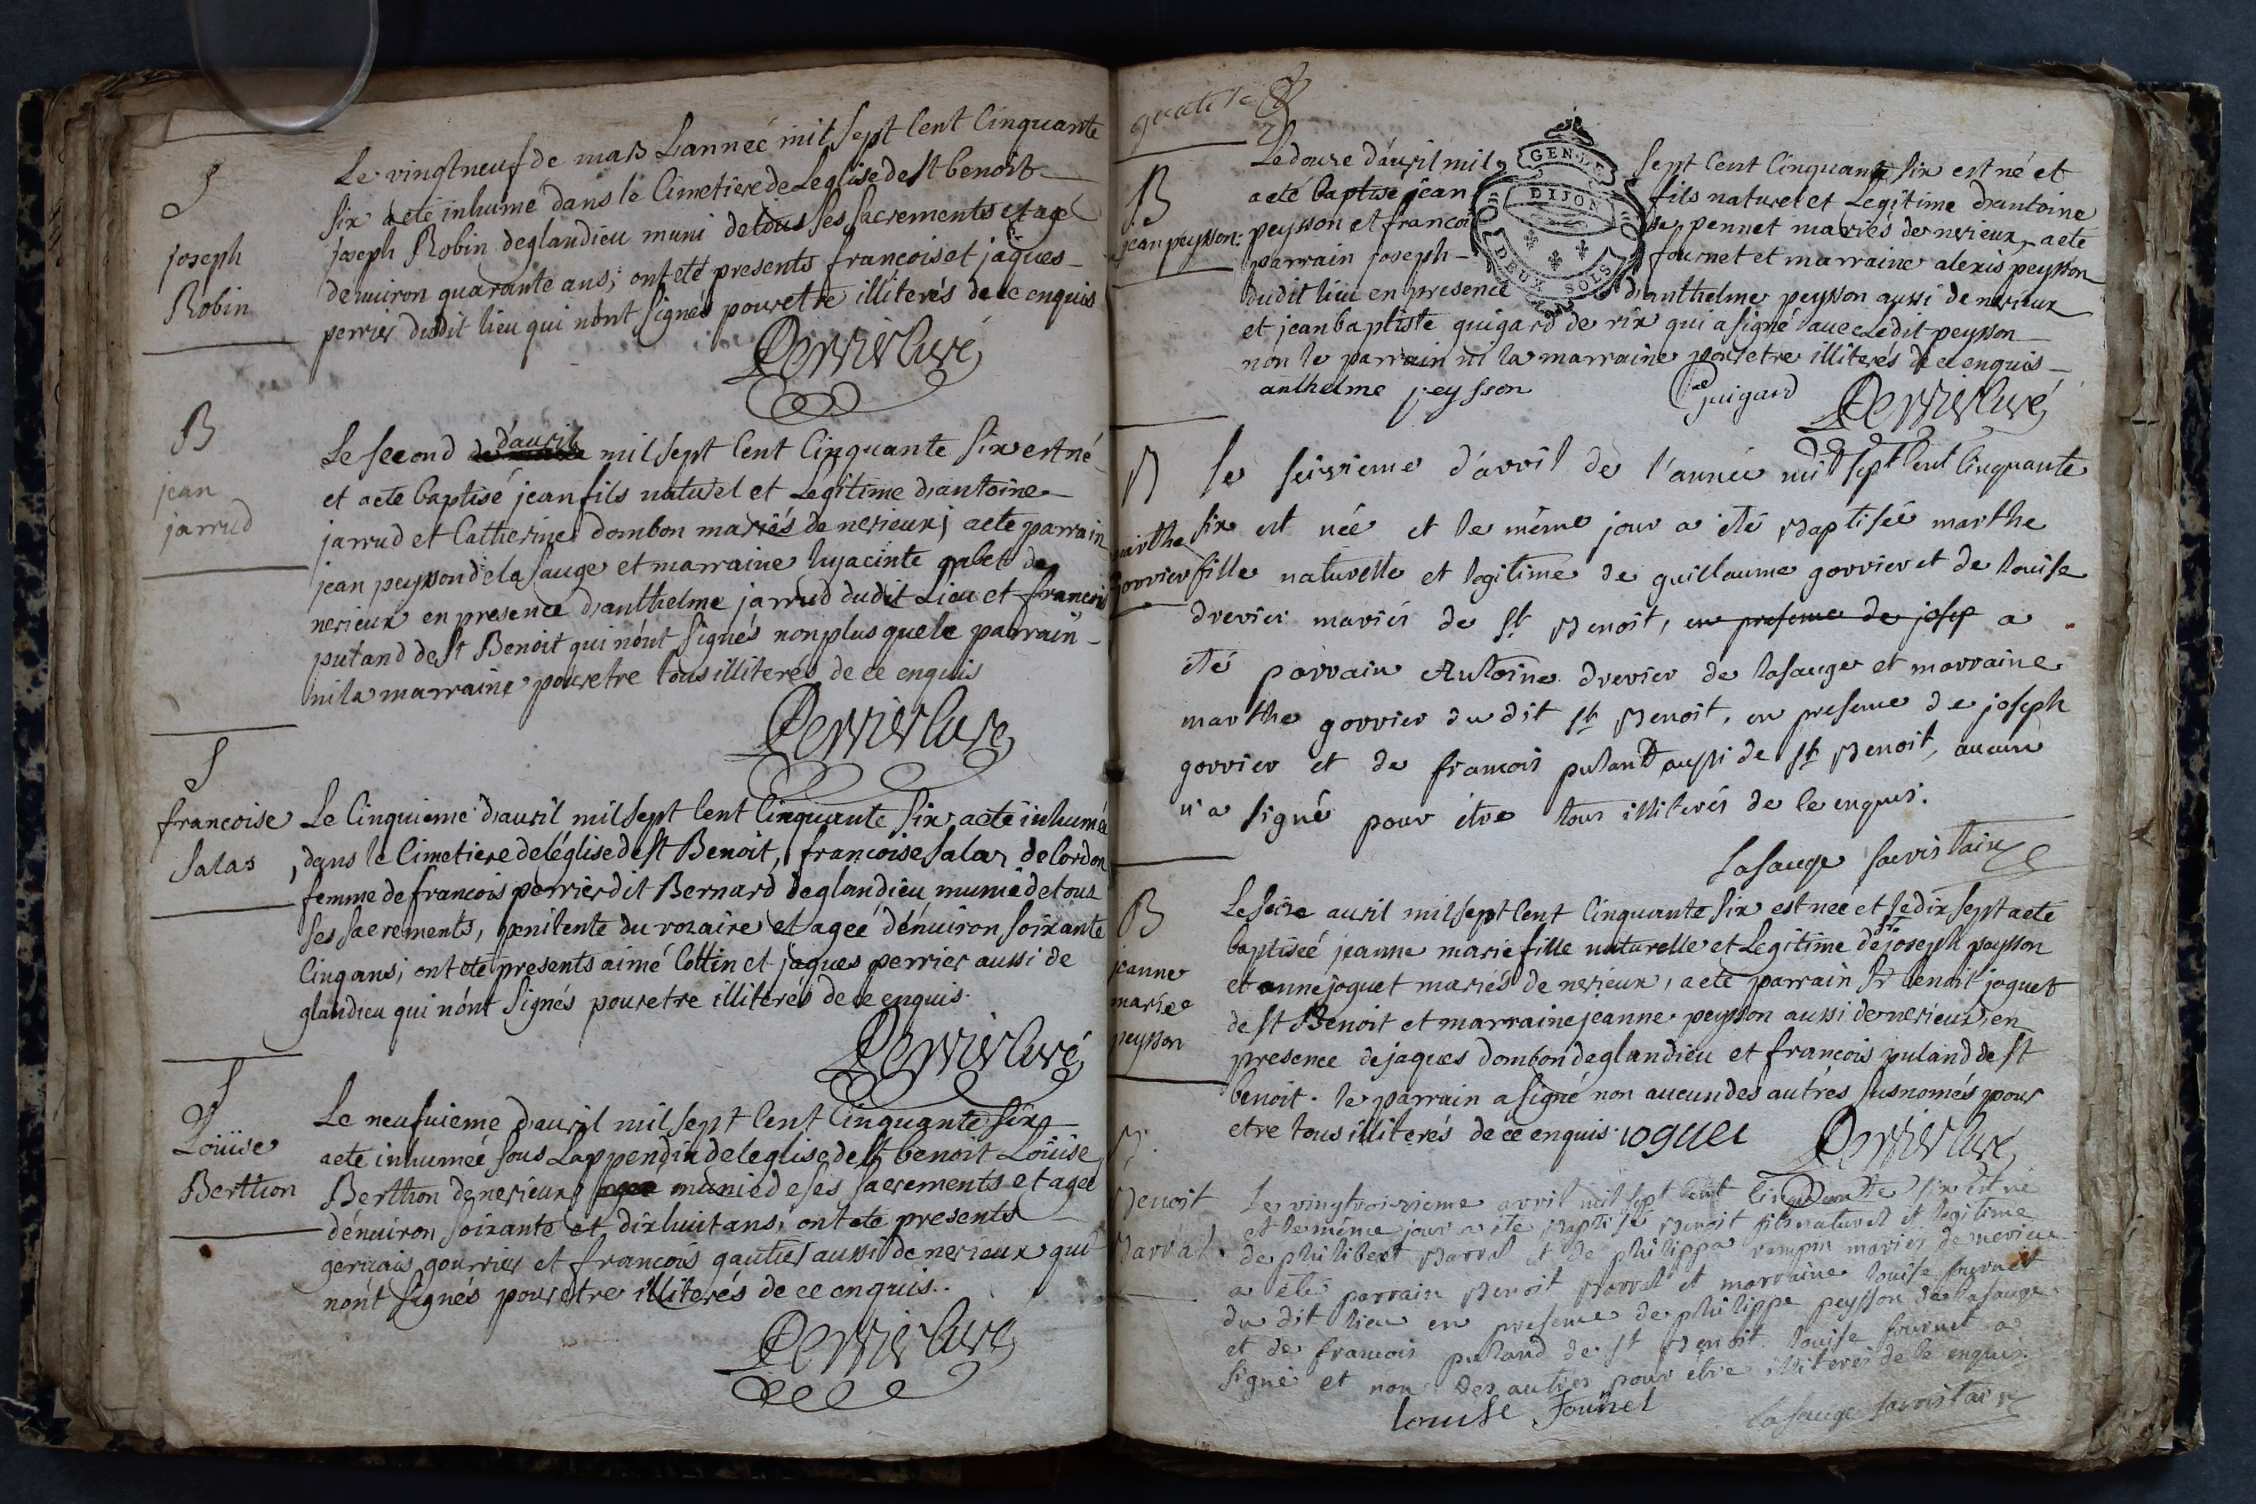 S
joseph
Robin
Le vingt neuf de mars L'anneé mil sept Cent Cinquante
six a eté inhumé dans le Cimetiere de Leglise de St benoit
joseph Robin de glandieu muni de tous ses sacrements et agé
denuiron quarante ans; ont eté presents francois et jaques
perrier dudit lieu qui n'ont signés pour etre illiterés de ce enquis
Perrier Curé
B
jean
jarrud
d'auril
Le second mil sept Cent Cinquante six est né
et a eté baptisé jean fils naturel et Legitime d'antoine
jarrud et Catherine dombon mariés de nerieux; a eté parrain
jean peysson de la sauge et marraine hyacinte gabet de
nerieux en presence d'anthelme jarrud dudit Lieu et francois
putand de St Benoit qui n'ont signés non plus que le parrain
ni la marraine pour etre tous illiterés de ce enquis
Perrier Curé
S
francoise
Salas
Le Cinquieme d'auril mil sept Cent Cinquante six a eté inhumé
dans le Cimetiere de léglise de St Benoit, francoise Salas de Cordon
femme de francois perrier dit Bernard de glandieu munie de tous
ses sacrements, penitente du rozaire et ageé dénuiron soixante
Cinq ans; ont eté presents aimé Cottin et jaques perrier aussi de
glandieu qui n'ont signés pour etre illiterés de ce enquis.
Perrier Curé
S
Loüise
Berthon
Le neufuieme d'auril mil sept Cent Cinquante six
a eté inhumeé sous L'appendix de leglise de St benoit Loüise
Berthon de nerieux munie de ses sacrements et ageé
dénuiron soixante et dix huit ans, ont eté presents
geruais gourrier et francois gautier aussi de nerieux qui
n'ont signés pour etre illiterés de ce enquis.
Perrier Curé
B
jean peysson
GEN. DE
DIJON
DEUX SOLS
Le douze d'auril mil sept Cent Cinquante six est né et
a eté baptisé jean fils naturel et Legitime d'antoine
peysson et francoise pennet mariés de nerieux, a eté
parrain joseph fournet et marraine alexis peysson
dudit lieu en presence d'anthelme peysson aussi de nerieux
et jean baptiste guigard de rix qui a signé auec Ledit peysson
non le parrain ni la marraine pour etre illiterés de ce enquis
anthelme peysson Guigard Perrier Curé
B
marthe
gorrier
le seizieme d'avril de l'année mil sept Cent Cinquante
six est née et le même jour a été Baptisée marthe
fille naturelle et legitime de guillaume gorrier et de louise
drevier mariés de St Benoit, en presence de josep a
été parrain Antoine drevier de lasauge et marraine
marthe gorrier du dit St Benoit, en presence de joseph
gorrier et de francois putand aussi de St Benoit, aucun
n'a signé pour être tous illiterés de ce enquis.
Lasauge sacristain
B
jeanne
mariee
peysson
Le seize auril mil sept Cent Cinquante six est neé et le dix sept a eté
baptiseé jeanne marie fille naturelle et Legitime de joseph peysson
et anne joguet mariés de nerieux, a eté parrain Sr benoit joguet
de St Benoit et marraine jeanne peysson aussi de nerieux, en
presence de jaques dombon de glandieu et francois putand de St
benoit. le parrain a signé non aucun des autres susnomés pour
etre tous illiterés de ce enquis. joguet Perrier Curé
B.
Benoit
Barral.
Le vingtroisieme avril mil sept Cent Cinquante six est né
et le même jour a été Baptisé Benoit fils naturel et legitime
de philibert Barral et de philippa mariés de nerieu
a été parrain Benoit Barral et marraine louise fournet
du dit lieu en presence de philippe peysson de lasauge
et de francois putand de St Benoit. louise fournet a
signé et non des autres pour être illiterés de ce enquis.
louise Founet Lasauge sacristain